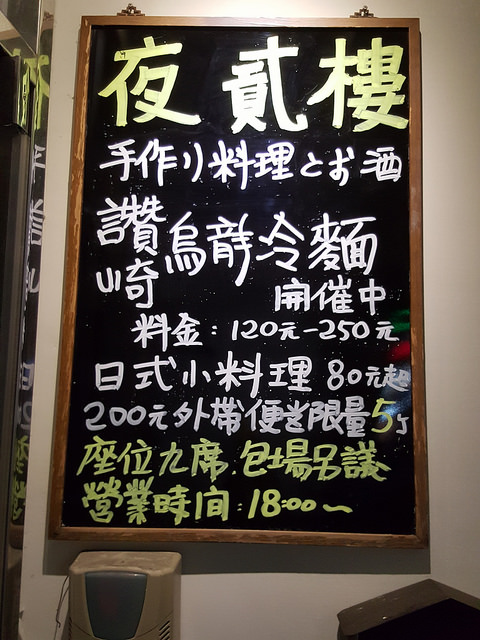 夜貳樓
手作り料理とお酒
讚崎烏龍冷麵
開催中
料金:120元-250元
日式小料理 80元起
200元外帶便當限量5
座位九席.包場另議
營業時間:18:00~